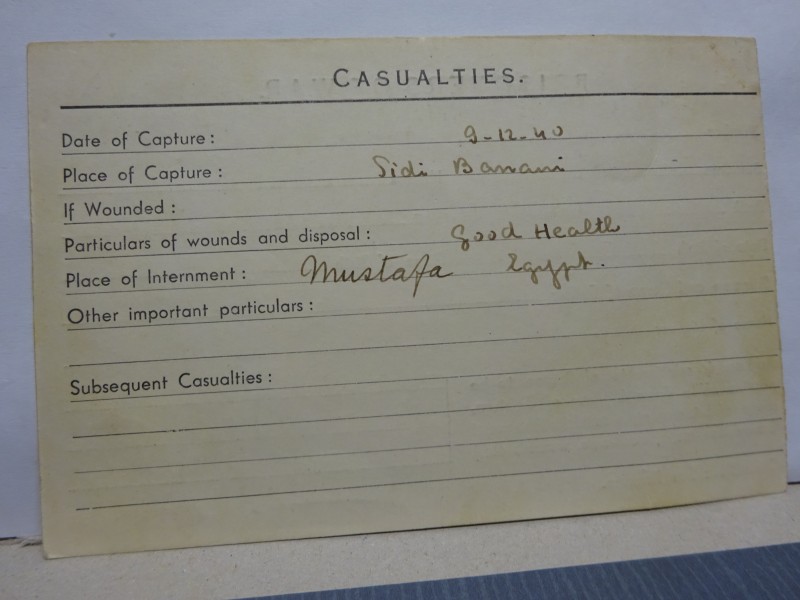 CASUALTIES.
Date of Capture: 9-12-40
Place of Capture: Sidi Banani
If Wounded:
Particulars of wounds and disposal: Good Health
Place of Internment: Mustafa Egypt.
Other important particulars:
Subsequent Casualties: